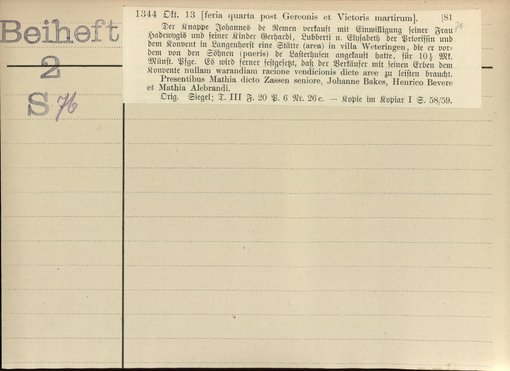 Beiheft
2
S 76
1344 Okt. 13 [feria quarta post Gereonis et Victoris martirum]. [81
76
Der Knappe Johannes de Remen verkauft mit Einwilligung seiner Frau
Hadewygis und seiner Kinder Gerhardi, Lubberti u. Elysabeth der Priorissin und
dem Konvent in Langenhorst eine Stätte (area) in villa Weteringen, die er vor-
dem von den Söhnen (pueris) de Lasterhusen angekauft hatte, für 10½ Mk.
Münst. Pfge. Es wird ferner festgesetzt, daß der Verkäufer mit seinen Erben dem
Konvente nullam warandiam racione vendicionis dicte arce zu leisten braucht.
Presentibus Mathia dicto Zassen seniore, Johanne Bakes, Henrico Bevere
et Mathia Alebrandi.
Orig. Siegel; T. III F. 20 P. 6 Nr. 26 c. — Kopie im Kopiar I S. 58/59.